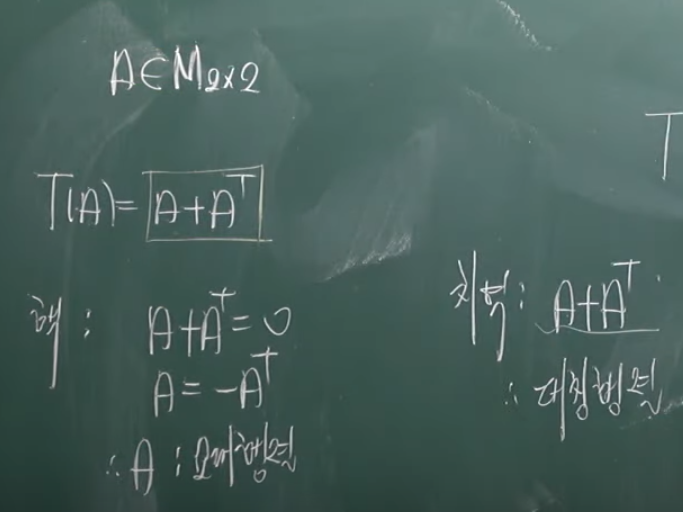 A∈M₂ₓ₂
T(A)= A+Aᵀ
핵 : A+Aᵀ=0
A=-Aᵀ
∴ A : 교대행렬
T
치역 : A+Aᵀ
∴ 대칭행렬